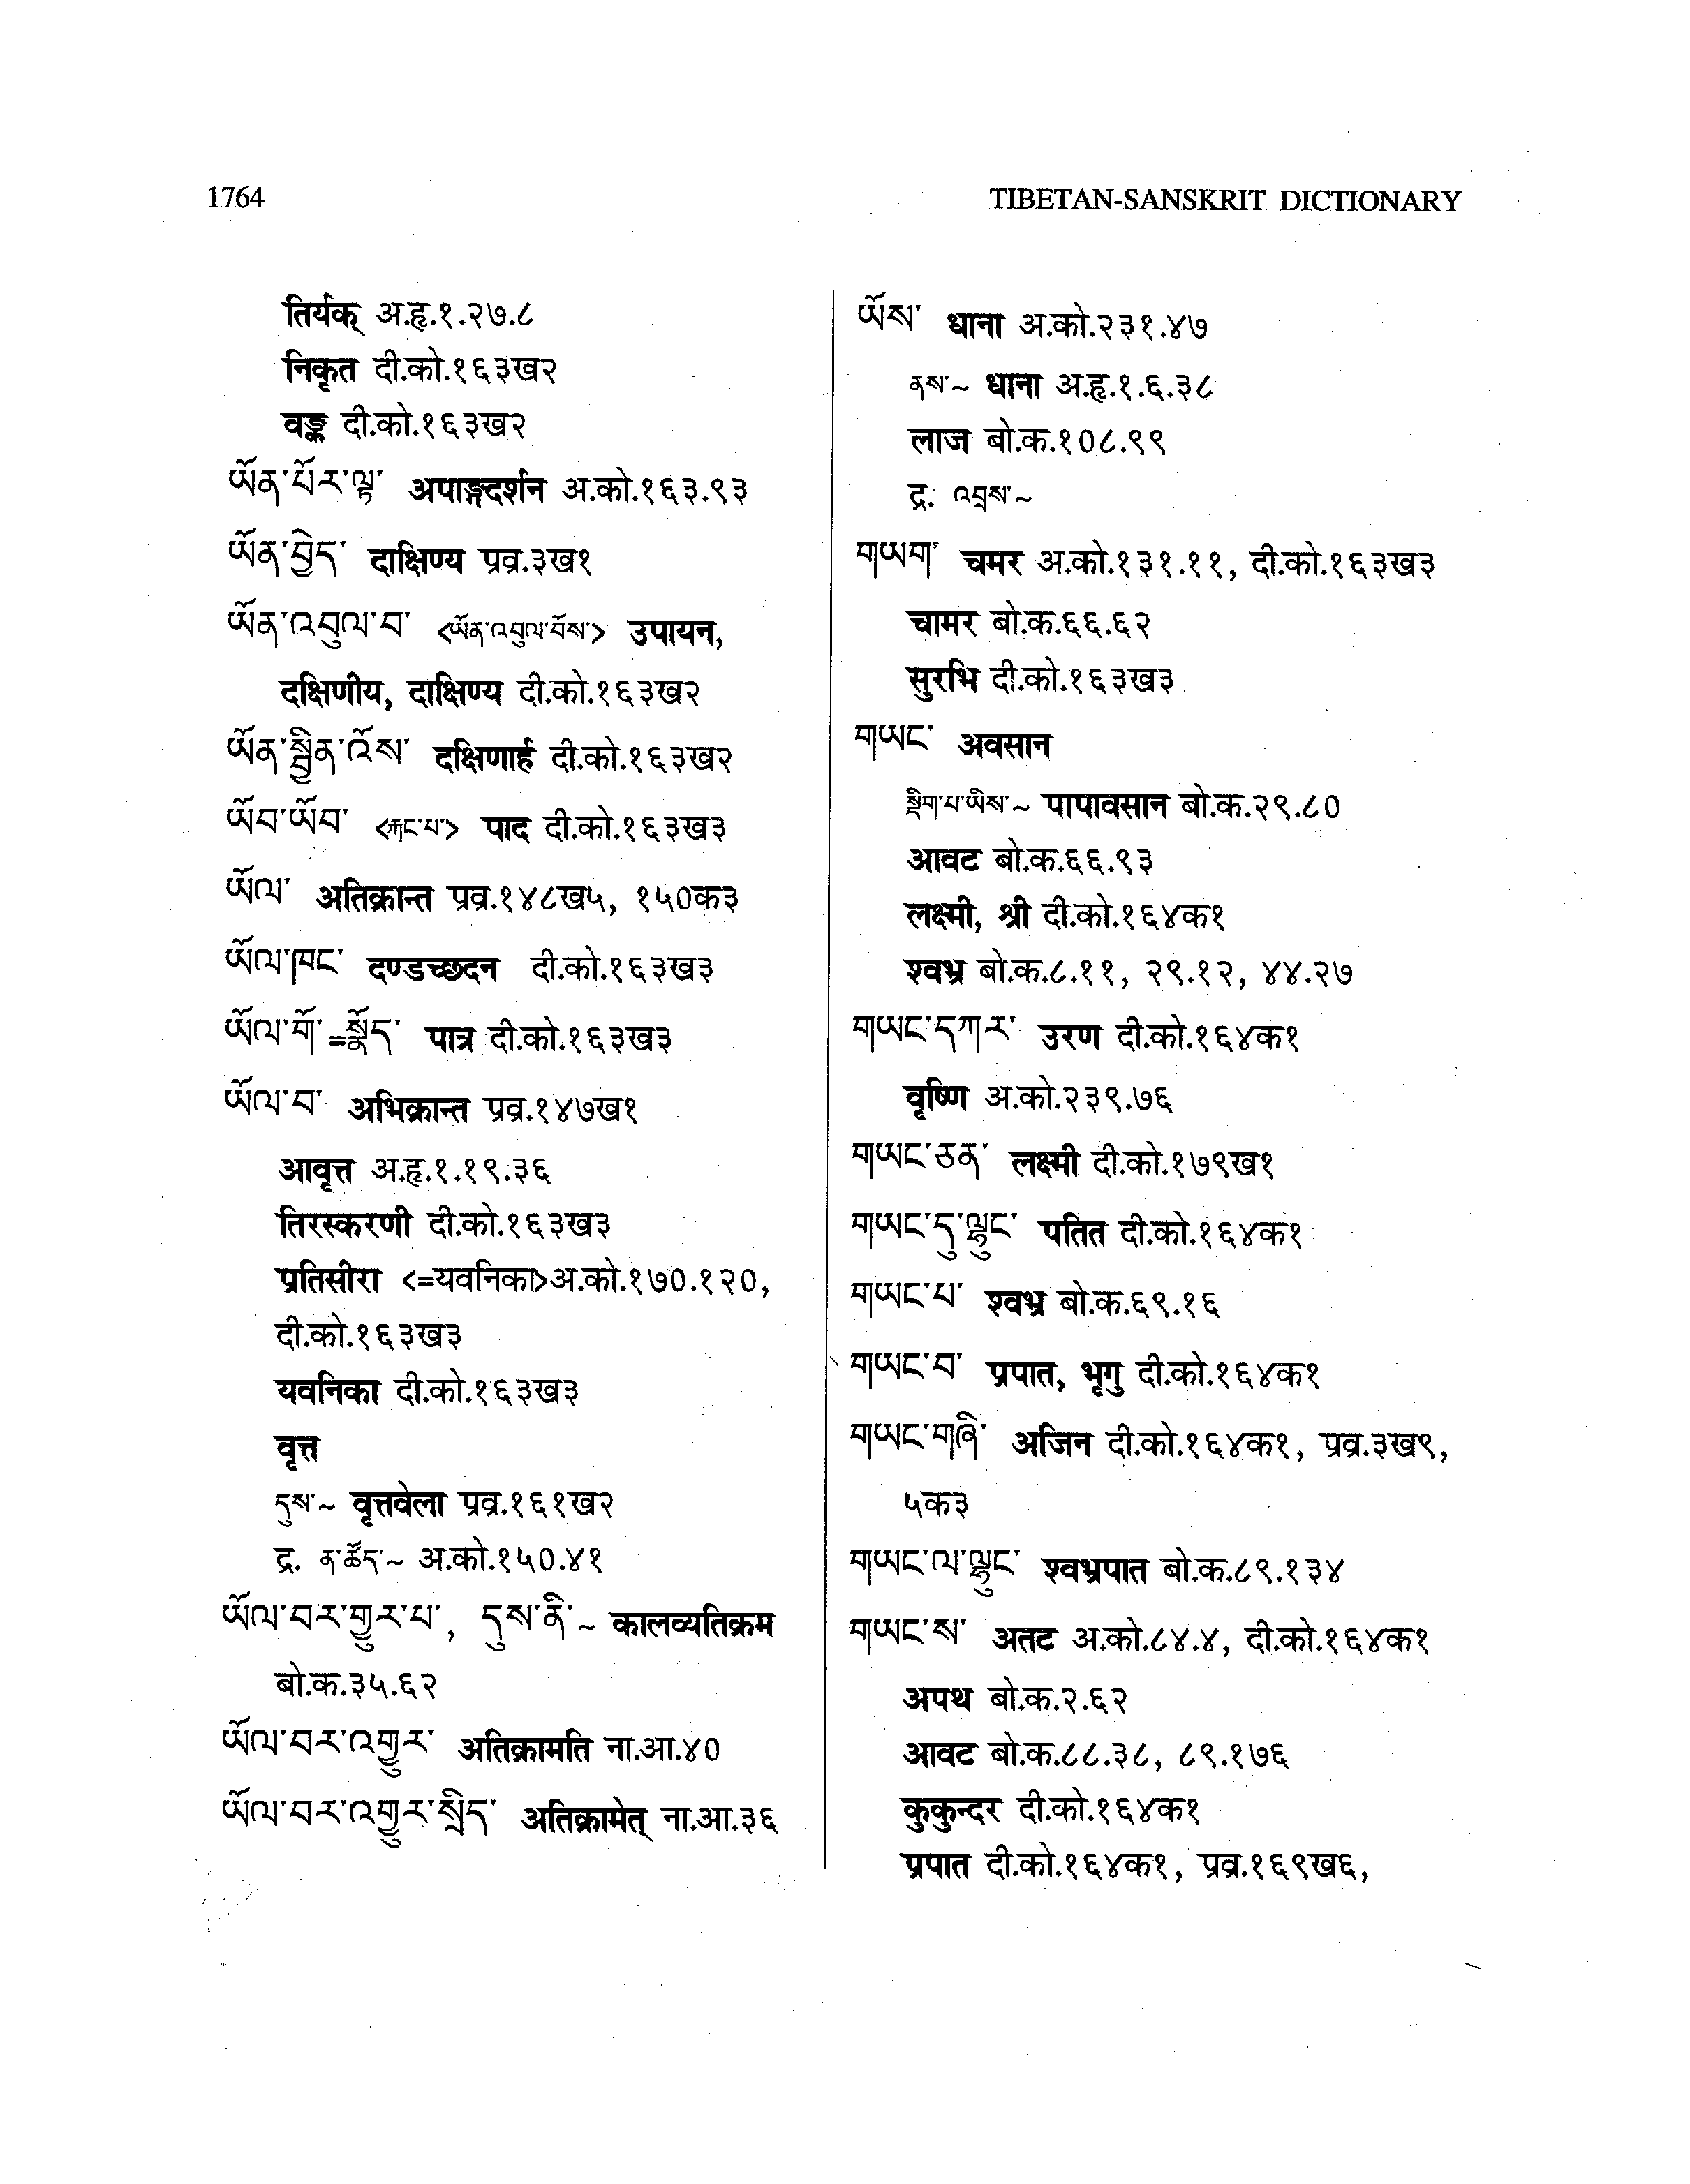 1764
TIBETAN-SANSKRIT DICTIONARY
तिर्यक् अ.हृ.१.२७.८
निकृत दी.को.१६३ख२
वङ्क दी.को.१६३ख२
ཡོན་པོར་ལྟ་ अपाङ्गदर्शन अ.को.१६३.९३
ཡོན་བྱེད་ दाक्षिण्य प्रव्र.३ख१
ཡོན་འབུལ་བ་ <ཡོན་འབུལ་བོས་> उपायन,
दक्षिणीय, दाक्षिण्य दी.को.१६३ख२
ཡོན་སྦྱིན་འོས་ दक्षिणार्ह दी.को.१६३ख२
ཡོབ་ཡོབ་ <རྐང་པ་> पाद दी.को.१६३ख३
ཡོལ་ अतिक्रान्त प्रव्र.१४८ख५, १५०क३
ཡོལ་ཁང་ दण्डच्छदन दी.को.१६३ख३
ཡོལ་གོ་=སྣོད་ पात्र दी.को.१६३ख३
ཡོལ་བ་ अभिक्रान्त प्रव्र.१४७ख१
आवृत्त अ.हृ.१.१९.३६
तिरस्करणी दी.को.१६३ख३
प्रतिसीरा <=यवनिका>अ.को.१७०.१२०,
दी.को.१६३ख३
यवनिका दी.को.१६३ख३
वृत्त
དུས་~ वृत्तवेला प्रव्र.१६१ख२
द्र. ན་ཚོད་~ अ.को.१५०.४१
ཡོལ་བར་གྱུར་པ་, དུས་ནི་~ कालव्यतिक्रम
बो.क.३५.६२
ཡོལ་བར་འགྱུར་ अतिक्रामति ना.आ.४०
ཡོལ་བར་འགྱུར་སྲིད་ अतिक्रामेत् ना.आ.३६
ཡོས་ धाना अ.को.२३१.४७
ནས་~ धाना अ.हृ.१.६.३८
लाज बो.क.१०८.९९
द्र. འབྲས་~
གཡག་ चमर अ.को.१३१.११, दी.को.१६३ख३
चामर बो.क.६६.६२
सुरभि दी.को.१६३ख३
གཡང་ अवसान
སྡིག་པ་ཡིས་~ पापावसान बो.क.२९.८०
आवट बो.क.६६.९३
लक्ष्मी, श्री दी.को.१६४क१
श्वभ्र बो.क.८.११, २९.१२, ४४.२७
གཡང་དཀར་ उरण दी.को.१६४क१
वृष्णि अ.को.२३९.७६
གཡང་ཅན་ लक्ष्मी दी.को.१७९ख१
གཡང་དུ་ལྷུང་ पतित दी.को.१६४क१
གཡང་པ་ श्वभ्र बो.क.६९.१६
གཡང་བ་ प्रपात, भृगु दी.को.१६४क१
གཡང་གཞི་ अजिन दी.को.१६४क१, प्रव्र.३ख९,
५क३
གཡང་ལ་ལྷུང་ श्वभ्रपात बो.क.८९.१३४
གཡང་ས་ अतट अ.को.८४.४, दी.को.१६४क१
अपथ बो.क.२.६२
आवट बो.क.८८.३८, ८९.१७६
कुकुन्दर दी.को.१६४क१
प्रपात दी.को.१६४क१, प्रव्र.१६९ख६,